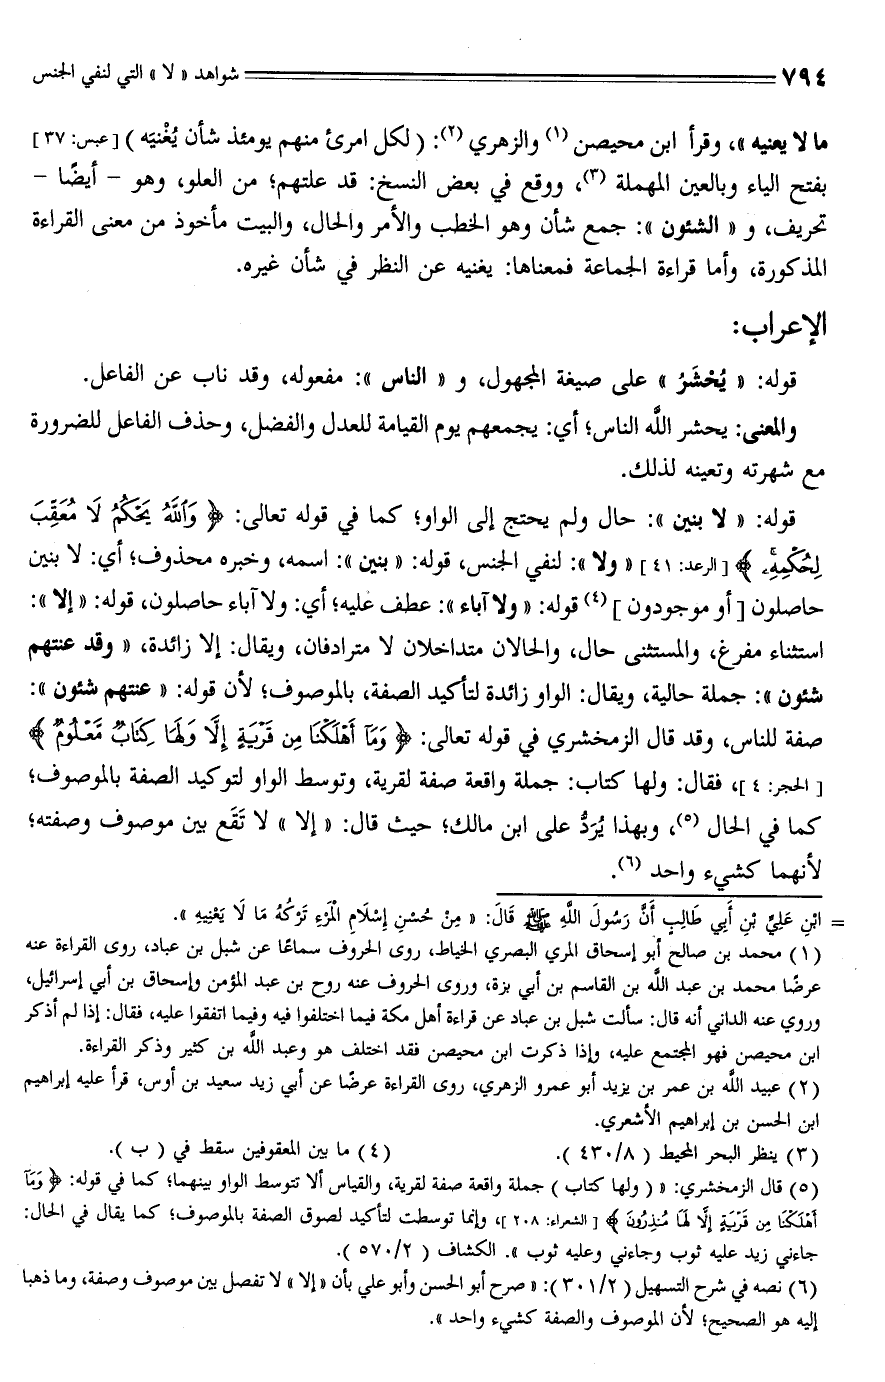 ٧٩٤ شواهد « لا » التي لنفي الجنس
ما لا يعنيه »، وقرأ ابن محيصن (١) والزهري (٢): ( لكل امرئ منهم يومئذ شأن يُغْنيَه ) [ عبس: ٣٧ ]
بفتح الياء وبالعين المهملة (٣)، ووقع في بعض النسخ: قد علتهم؛ من العلو، وهو - أيضًا -
تحريف، و « الشئون »: جمع شأن وهو الخطب والأمر والحال، والبيت مأخوذ من معنى القراءة
المذكورة، وأما قراءة الجماعة فمعناها: يغنيه عن النظر في شأن غيره.
الإعراب:
قوله: « يُحْشَرُ » على صيغة المجهول، و « الناس »: مفعوله، وقد ناب عن الفاعل.
والمعنى: يحشر اللَّه الناس؛ أي: يجمعهم يوم القيامة للعدل والفضل، وحذف الفاعل للضرورة
مع شهرته وتعينه لذلك.
قوله: « لا بنين »: حال ولم يحتج إلى الواو؛ كما في قوله تعالى: ﴿ وَٱللَّهُ يَحْكُمُ لَا مُعَقِّبَ
لِحُكْمِهِۦ ﴾ [ الرعد: ٤١ ] « ولا »: لنفي الجنس، قوله: « بنين »: اسمه، وخبره محذوف؛ أي: لا بنين
حاصلون [ أو موجودون ] (٤) قوله: « ولا آباء »: عطف عليه؛ أي: ولا آباء حاصلون، قوله: « إلا »:
استثناء مفرغ، والمستثنى حال، والحالان متداخلان لا مترادفان، ويقال: إلا زائدة، « وقد عنتهم
شئون »: جملة حالية، ويقال: الواو زائدة لتأكيد الصفة، بالموصوف؛ لأن قوله: « عنتهم شئون »:
صفة للناس، وقد قال الزمخشري في قوله تعالى: ﴿ وَمَآ أَهْلَكْنَا مِن قَرْيَةٍ إِلَّا وَلَهَا كِتَابٌ مَّعْلُومٌ ﴾
[ الحجر: ٤ ]، فقال: ولها كتاب: جملة واقعة صفة لقرية، وتوسط الواو لتوكيد الصفة بالموصوف؛
كما في الحال (٥)، وبهذا يُرَدُّ على ابن مالك؛ حيث قال: « إلا » لا تَقَع بين موصوف وصفته؛
لأنهما كشيء واحد (٦).
= ابْنِ عَلِيِّ بْنِ أَبِي طَالِبٍ أَنَّ رَسُولَ اللَّهِ ﷺ قَالَ: « مِنْ حُسْنِ إِسْلَامِ الْمَرْءِ تَرْكُهُ مَا لَا يَعْنِيهِ ».
(١) محمد بن صالح أبو إسحاق المري البصري الخياط، روى الحروف سماعًا عن شبل بن عباد، روى القراءة عنه
عرضًا محمد بن عبد اللَّه بن القاسم بن أبي بزة، وروى الحروف عنه روح بن عبد المؤمن وإسحاق بن أبي إسرائيل،
وروي عنه الداني أنه قال: سألت شبل بن عباد عن قراءة أهل مكة فيما اختلفوا فيه وفيما اتفقوا عليه، فقال: إذا لم أذكر
ابن محيصن فهو المجتمع عليه، وإذا ذكرت ابن محيصن فقد اختلف هو وعبد اللَّه بن كثير وذكر القراءة.
(٢) عبيد اللَّه بن عمر بن يزيد أبو عمرو الزهري، روى القراءة عرضًا عن أبي زيد سعيد بن أوس، قرأ عليه إبراهيم
ابن الحسن بن إبراهيم الأشعري.
(٣) ينظر البحر المحيط ( ٤٣٠/٨ ). (٤) ما بين المعقوفين سقط في ( ب ).
(٥) قال الزمخشري: « ( ولها كتاب ) جملة واقعة صفة لقرية، والقياس ألا تتوسط الواو بينهما؛ كما في قوله: ﴿ وَمَآ
أَهْلَكْنَا مِن قَرْيَةٍ إِلَّا لَهَا مُنذِرُونَ ﴾ [ الشعراء: ٢٠٨ ]، وإنما توسطت لتأكيد لصوق الصفة بالموصوف؛ كما يقال في الحال:
جاءني زيد عليه ثوب وجاءني وعليه ثوب ». الكشاف ( ٥٧٠/٢ ).
(٦) نصه في شرح التسهيل ( ٣٠١/٢ ): « صرح أبو الحسن وأبو علي بأن « إلا » لا تفصل بين موصوف وصفة، وما ذهبا
إليه هو الصحيح؛ لأن الموصوف والصفة كشيء واحد ».